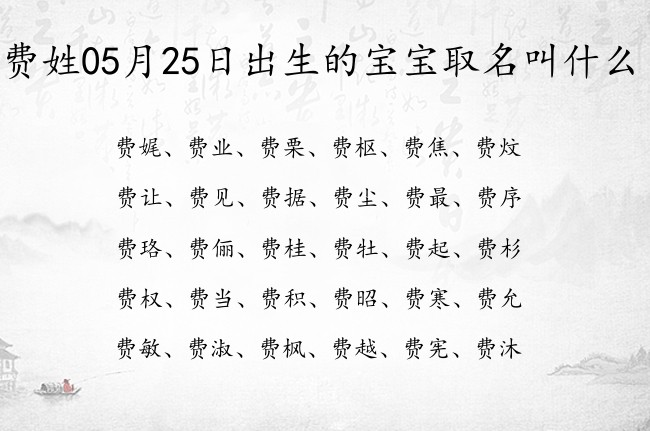 费姓05月25日出生的宝宝取名叫什么
费娓、费业、费栗、费枢、费焦、费炆
费让、费见、费据、费尘、费最、费序
费珞、费俪、费桂、费牡、费起、费杉
费权、费当、费积、费昭、费寒、费允
费敏、费淑、费枫、费越、费宪、费沐